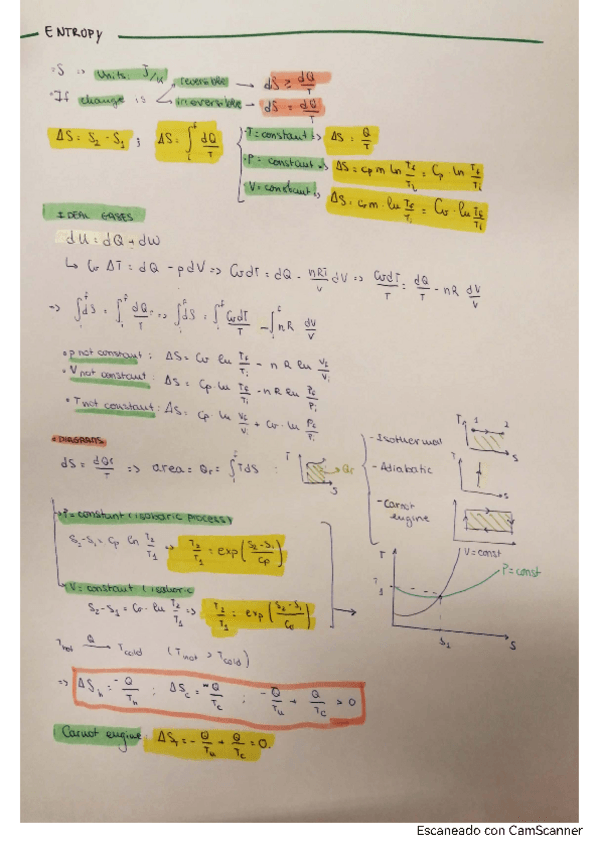 ENTROPY
·S => Units: J/K
reversible → dS ≥ dQ/T
·If change is
irreversible → dS = dQ/T
ΔS = S2 - S1 ; ΔS = ∫ dQ/T
T = constant => ΔS = Q/T
·P = constant => ΔS = cp m ln Tf/Ti = Cp · ln Tf/Ti
V = constant => ΔS = cv m · ln Tf/Ti = Cv · ln Tf/Ti
IDEAL GASES
dU = dQ + dW
↳ Cv ΔT = dQ - pdV => CvdT = dQ - nRT/V dV => CvdT/T = dQ/T - nR dV/V
=> ∫dS = ∫ dQ/T => ∫dS = ∫ CvdT/T - ∫ nR dV/V
·p not constant : ΔS = Cv ln Tf/Ti - nR ln Vf/Vi
·V not constant : ΔS = Cp · ln Tf/Ti - nR ln Pf/Pi
·T not constant : ΔS = Cp · ln Vf/Vi + Cv · ln Pf/Pi
·DIAGRAMS
dS = dQr/T => area = Qr = ∫TdS :
T Qr S
- Isothermal
T 1 2 S
- Adiabatic
T S
- Carnot engine
S
·P = constant (isobaric process)
S2-S1 = Cp ln T2/T1 => T2/T1 = exp(S2-S1/Cp)
V = constant (isobaric
S2-S1 = Cv · ln T2/T1 => T2/T1 = exp(S2-S1/Cv)
T V = const
P = const
T1
S1 S
Thot Q→ Tcold (Thot > Tcold)
=> ΔSh = -Q/Th ; ΔSc = -Q/Tc ; -Q/TH + Q/Tc > 0
Carnot engine: ΔST = -Q/TH + Q/Tc = 0.
Escaneado con CamScanner